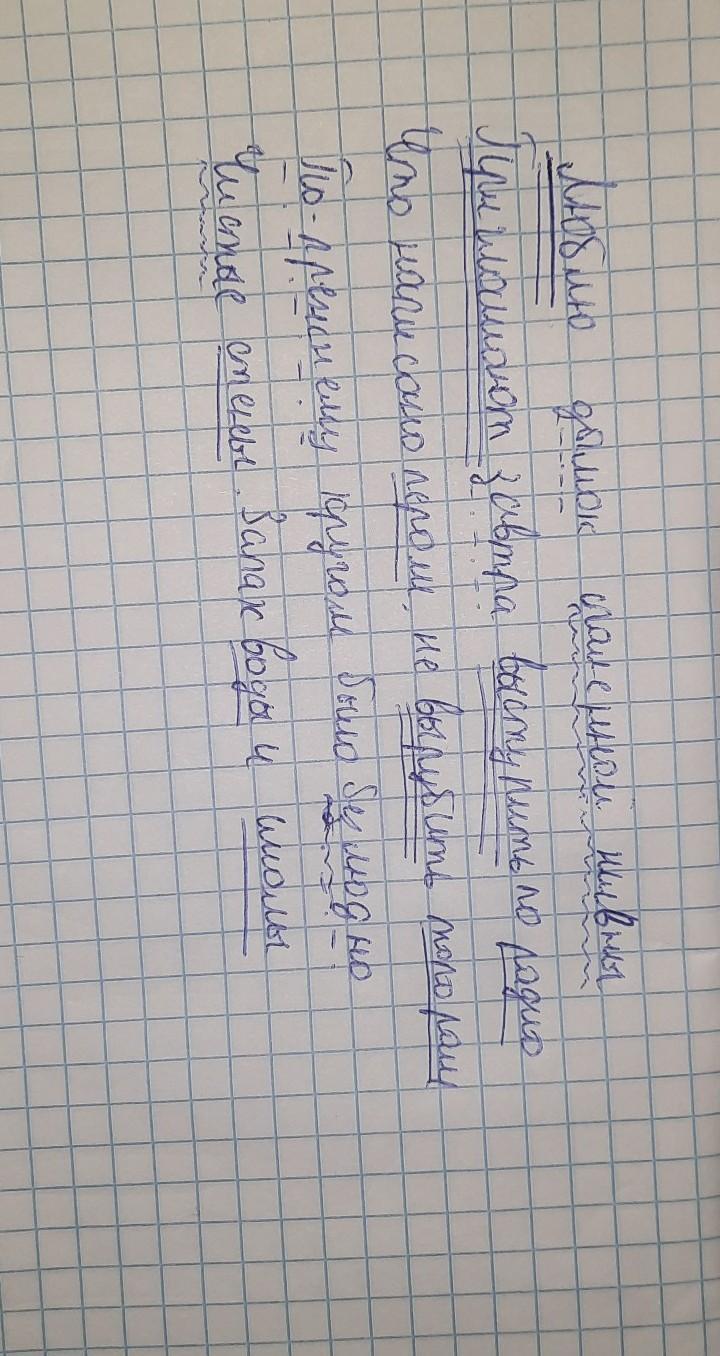 Люблю дымок спаленной жнивы
Приглашают завтра выступить по радио
Что написано пером, не вырубить топором
По-прежнему кругом было безлюдно
Чистые стены. Запах воды и смолы